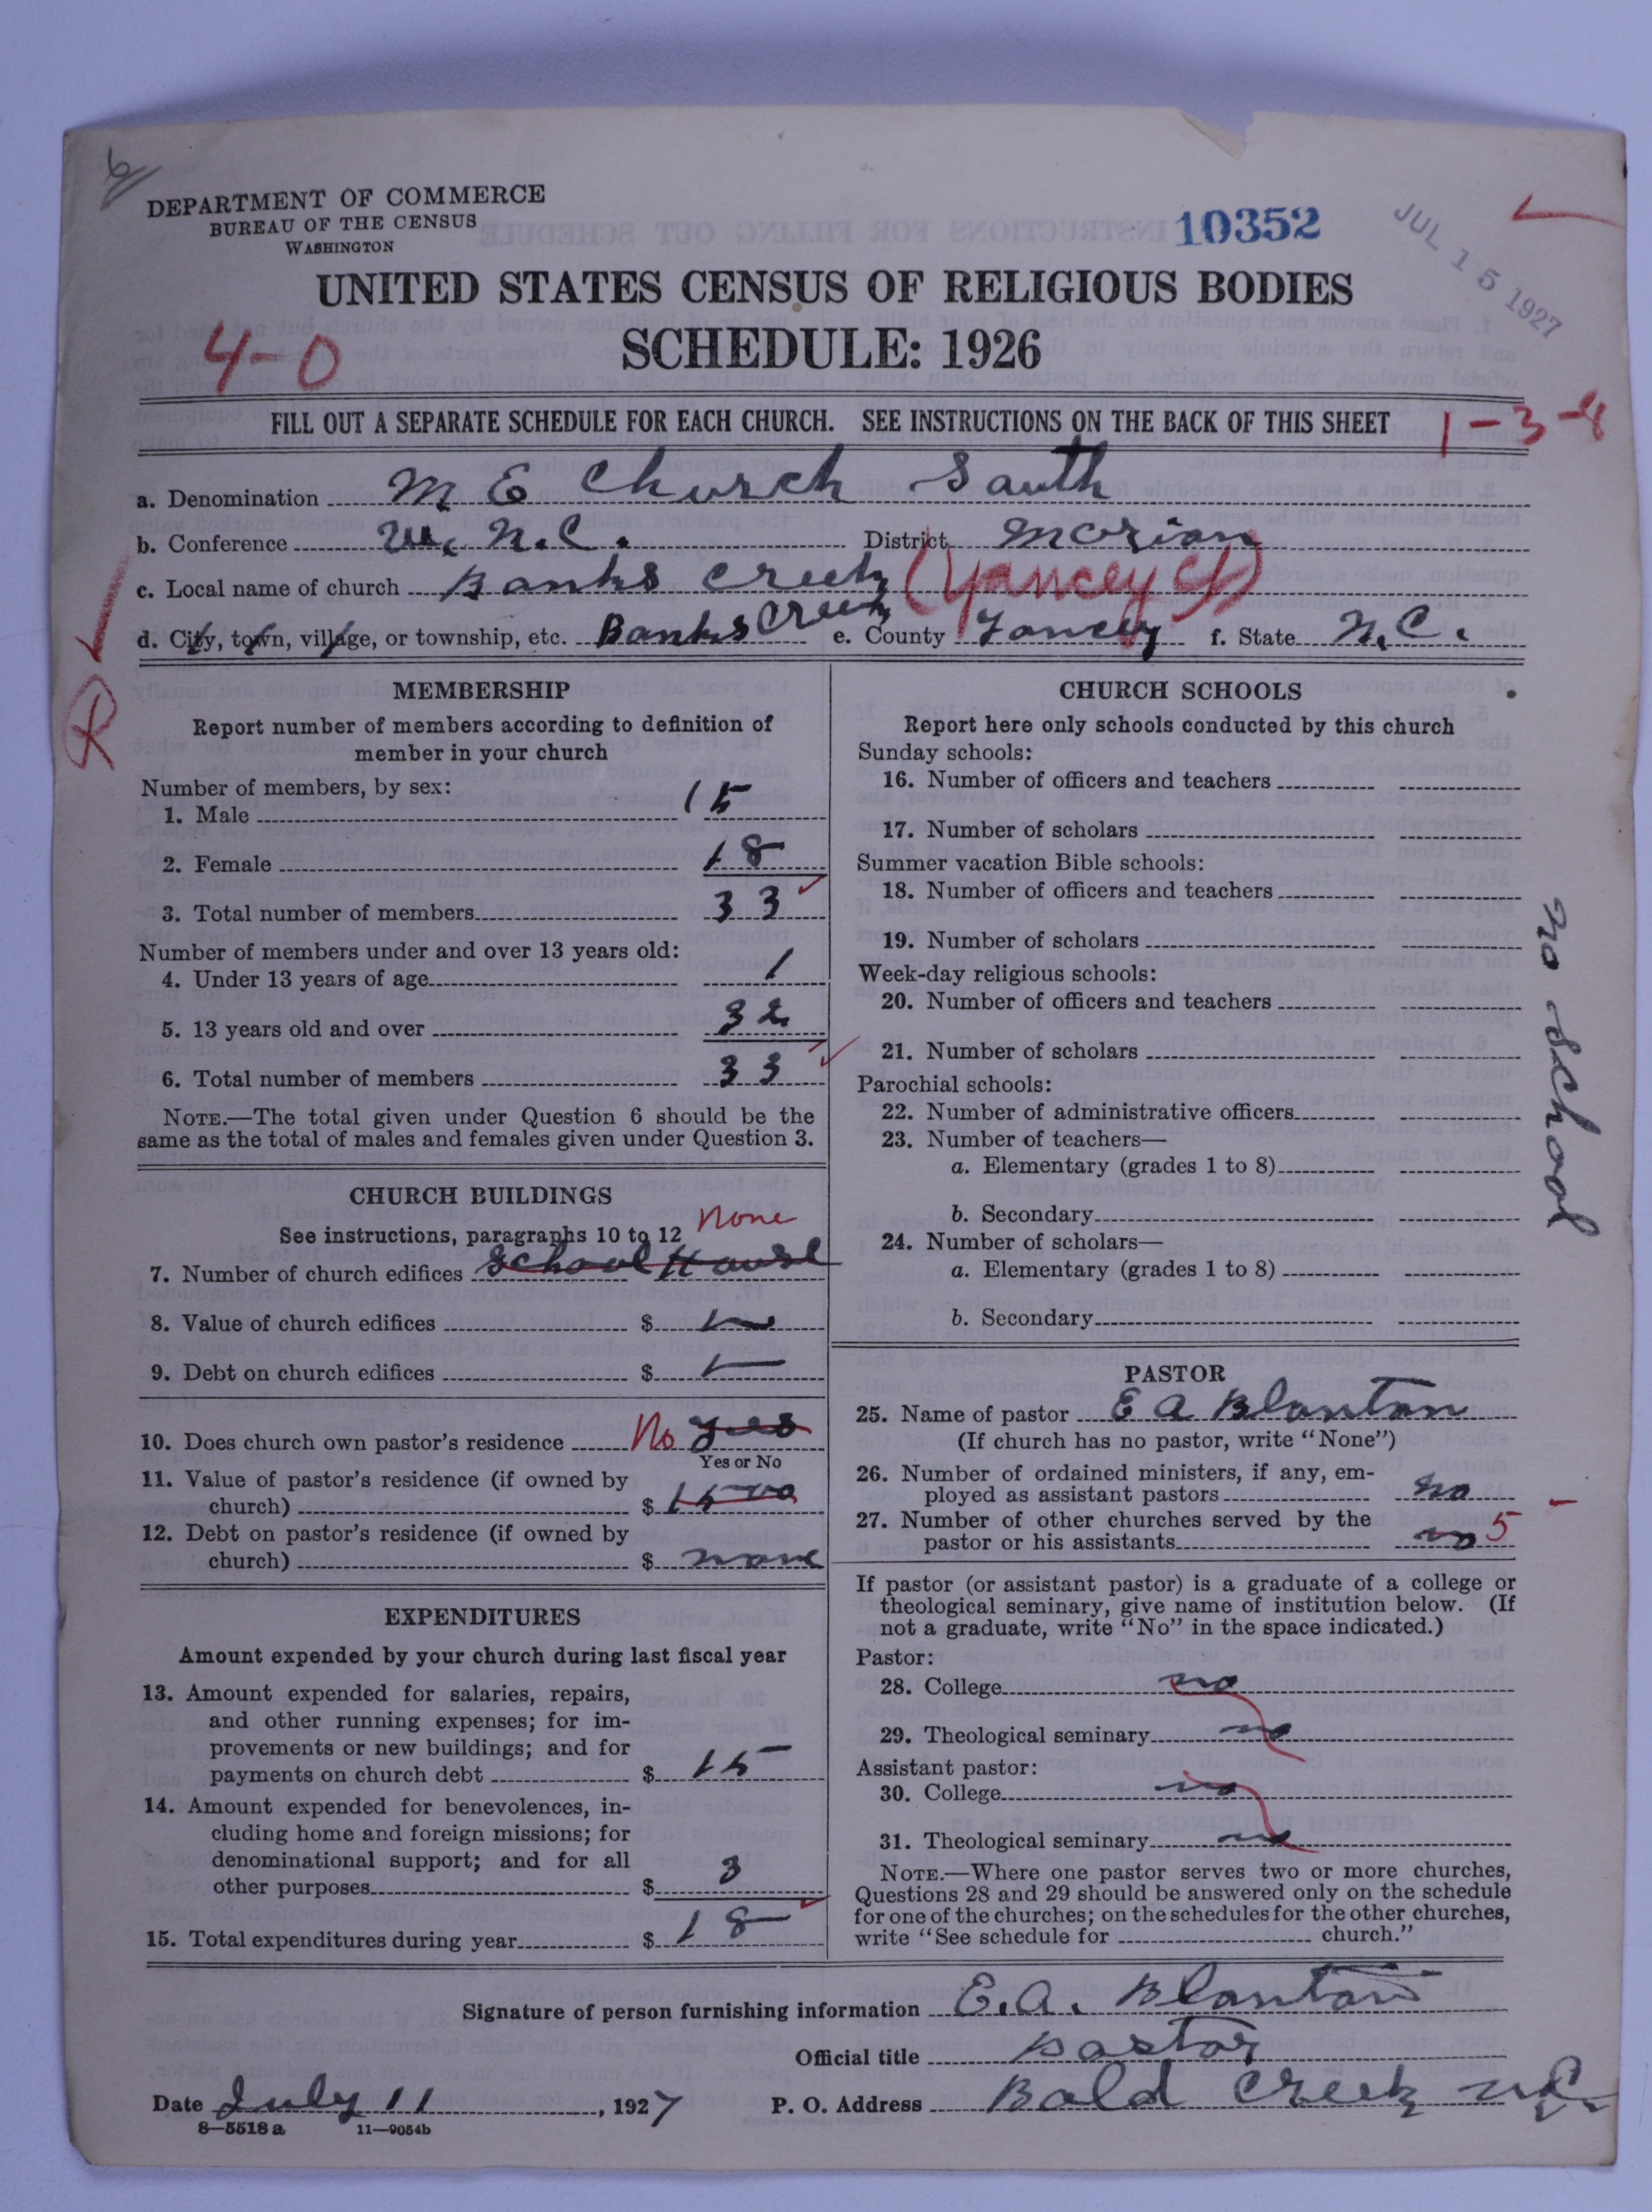 6
DEPARTMENT OF COMMERCE
BUREAU OF THE CENSUS
WASHINGTON
10352
JUL 15 1927
UNITED STATES CENSUS OF RELIGIOUS BODIES
4-0
SCHEDULE: 1926
FILL OUT A SEPARATE SCHEDULE FOR EACH CHURCH. SEE INSTRUCTIONS ON THE BACK OF THIS SHEET
1-3-8
a. Denomination M E Church South
b. Conference W. N.C. District Marian
c. Local name of church Banks Creek (Yancey Ct)
d. City, town, village, or township, etc. Banks Creek e. County Yancey f. State N.C.
MEMBERSHIP
Report number of members according to definition of
member in your church
Number of members, by sex:
1. Male 15
2. Female 18
3. Total number of members 33
Number of members under and over 13 years old:
4. Under 13 years of age 1
5. 13 years old and over 32
6. Total number of members 33
NOTE.—The total given under Question 6 should be the
same as the total of males and females given under Question 3.
CHURCH BUILDINGS
See instructions, paragraphs 10 to 12 none
7. Number of church edifices School House
8. Value of church edifices $
9. Debt on church edifices $
10. Does church own pastor's residence No yes
Yes or No
11. Value of pastor's residence (if owned by
church) $ 1500
12. Debt on pastor's residence (if owned by
church) $ none
EXPENDITURES
Amount expended by your church during last fiscal year
13. Amount expended for salaries, repairs,
and other running expenses; for im-
provements or new buildings; and for
payments on church debt $ 15
14. Amount expended for benevolences, in-
cluding home and foreign missions; for
denominational support; and for all
other purposes $ 3
15. Total expenditures during year $ 18
CHURCH SCHOOLS
Report here only schools conducted by this church
Sunday schools:
16. Number of officers and teachers
17. Number of scholars
Summer vacation Bible schools:
18. Number of officers and teachers
19. Number of scholars
Week-day religious schools:
20. Number of officers and teachers
21. Number of scholars
Parochial schools:
22. Number of administrative officers
23. Number of teachers—
a. Elementary (grades 1 to 8)
b. Secondary
24. Number of scholars—
a. Elementary (grades 1 to 8)
b. Secondary
no School
PASTOR
25. Name of pastor E A Blanton
(If church has no pastor, write "None")
26. Number of ordained ministers, if any, em-
ployed as assistant pastors no
27. Number of other churches served by the
pastor or his assistants no 5
If pastor (or assistant pastor) is a graduate of a college or
theological seminary, give name of institution below. (If
not a graduate, write "No" in the space indicated.)
Pastor:
28. College no
29. Theological seminary no
Assistant pastor:
30. College no
31. Theological seminary no
NOTE.—Where one pastor serves two or more churches,
Questions 28 and 29 should be answered only on the schedule
for one of the churches; on the schedules for the other churches,
write "See schedule for church."
Signature of person furnishing information E. A. Blanton
Official title Pastor
Date July 11, 1927 P. O. Address Bald Creek N.C.
8—5518 a 11—9054b